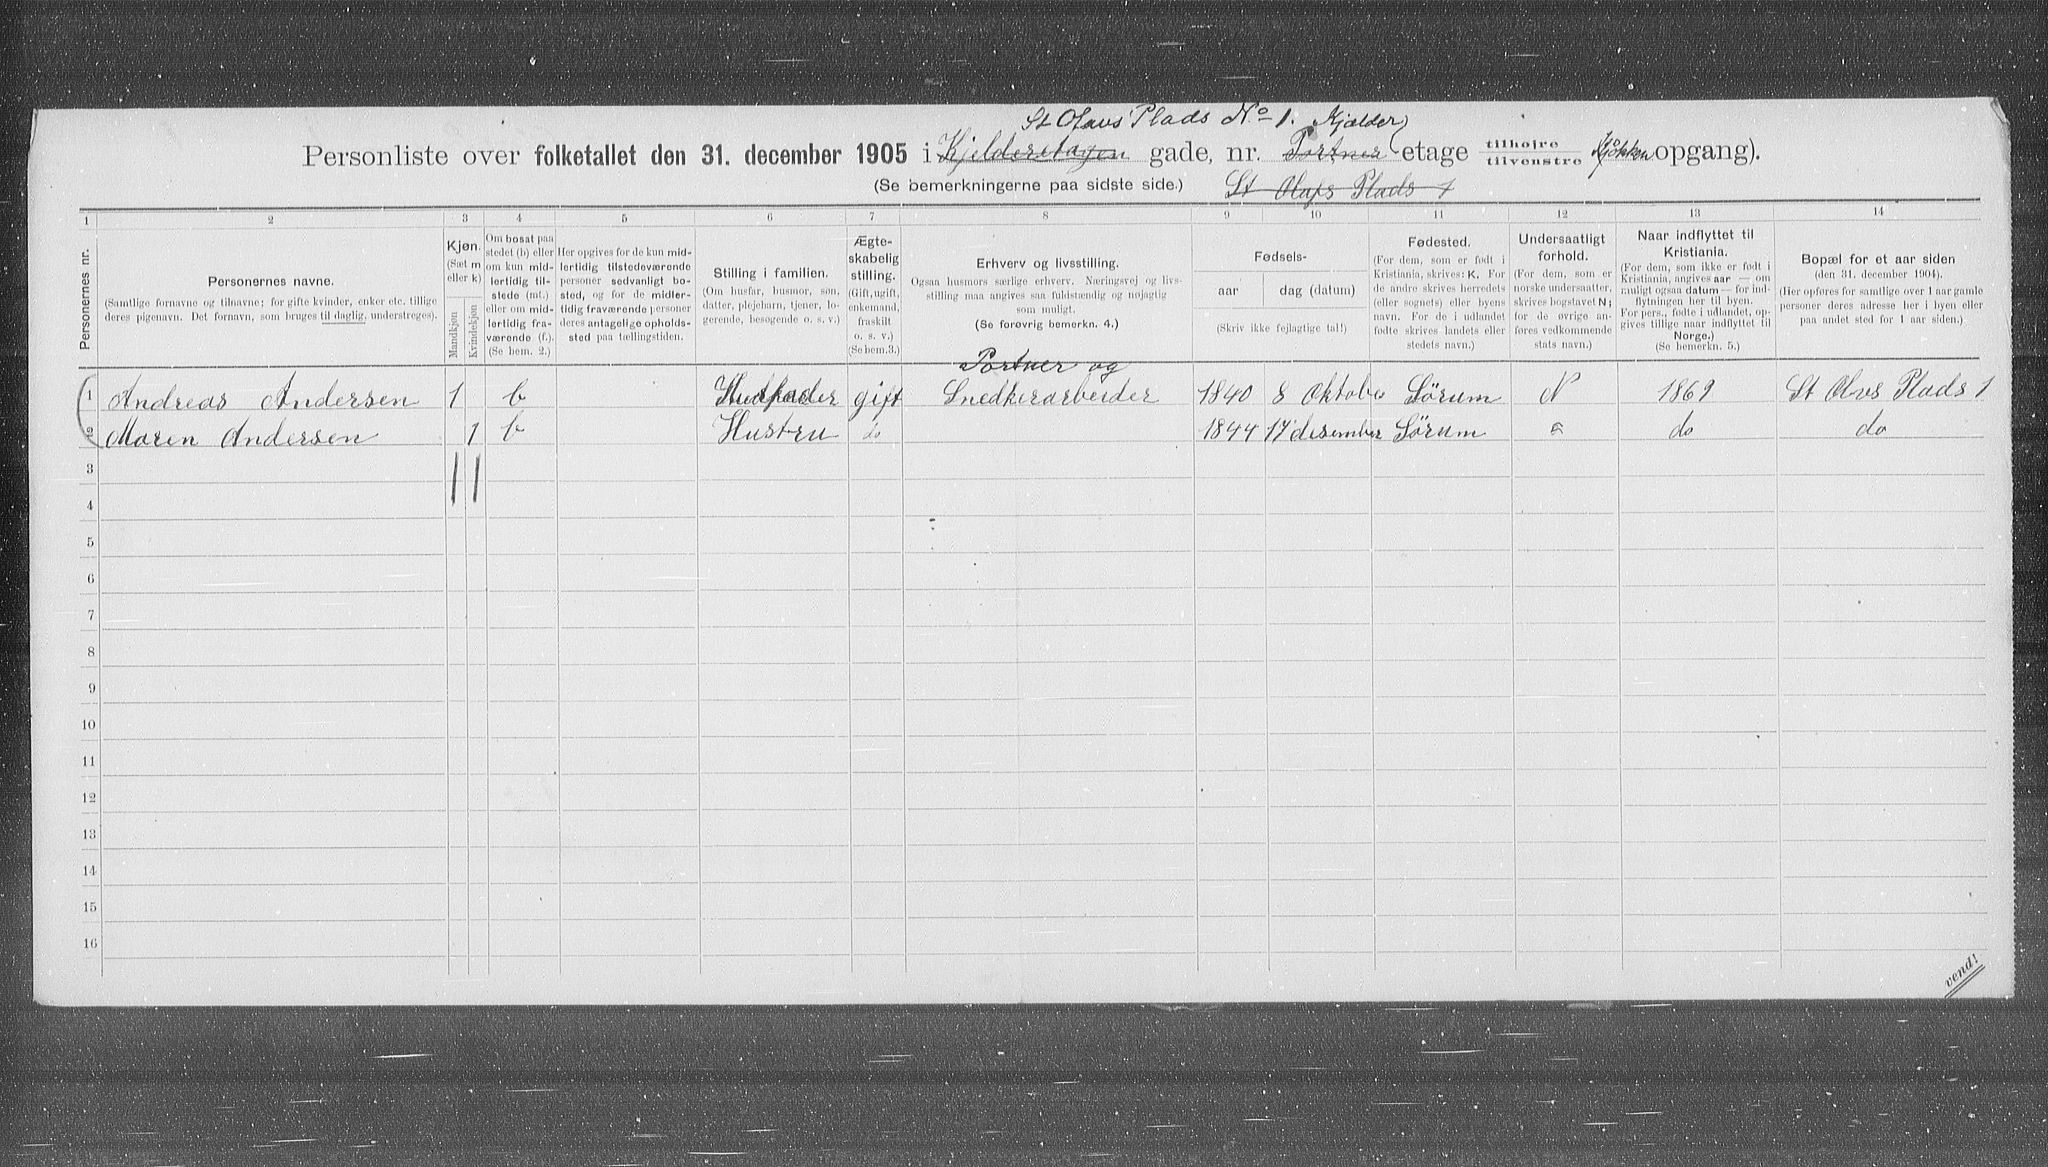 St Olavs' Plads No 1. Kjælder
Personliste over folketallet den 31. december 1905 i Kjelderetagen gade, nr. Portner etage tilhøjre tilvenstre Kjøkken opgang).
(Se bemerkningerne paa sidste side.) St Olafs Plads 1
1 2 3 4 5 6 7 8 9 10 11 12 13 14
Personernes nr.
Personernes navne.
(Samtlige fornavne og tilnavne; for gifte kvinder, enker etc. tillige
deres pigenavn. Det fornavn, som bruges til daglig, understreges).
Kjøn.
(Sæt m
eller k)
Mandkjøn
Kvindekjøn
Om bosat paa
stedet (b) eller
om kun mid-
lertidig til-
stede (mt.)
eller om mid-
lertidig fra-
værende (f.).
(Se bem. 2.)
Her opgives for de kun mid-
lertidig tilstedeværende
personer sedvanligt bo-
sted, og for de midler-
tidig fraværende personer
deres antagelige opholds-
sted paa tællingstiden.
Stilling i familien.
(Om husfar, husmor, søn,
datter, plejebarn, tjener, lo-
gerende, besøgende o. s. v.)
Ægte-
skabelig
stilling.
(Gift, ugift,
enkemand,
fraskilt
o. s. v.)
(Se bem.3.)
Erhverv og livsstilling.
Ogsaa husmors særlige erhverv. Næringsvej og livs-
stilling maa angives saa fuldstændig og nøjagtig
som muligt.
(Se forøvrig bemerkn. 4.)
Fødsels-
aar
dag (datum)
(Skriv ikke fejlagtige tal!)
Fødested.
(For dem, som er født i
Kristiania, skrives: K. For
de andre skrives herredets
(eller sognets) eller byens
navn. For de i udlandet
fødte skrives landets eller
stedets navn.)
Undersaatligt
forhold.
(For dem, som er
norske undersaatter,
skrives bogstavet N;
for de øvrige an-
føres vedkommende
stats navn.)
Naar indflyttet til
Kristiania.
(For dem, som ikke er født i
Kristiania, angives aar — om
muligt ogsaa datum — for ind-
flytningen her til byen.
For pers., fødte i udlandet, op-
gives tillige naar indflyttet til
Norge.)
(Se bemerkn. 5.)
Bopæl for et aar siden
(den 31. december 1904).
(Her opføres for samtlige over 1 aar gamle
personer deres adresse her i byen eller
paa andet sted for 1 aar siden.)
Portner og
1 Andreas Andersen 1 b Husfader gift Snedkerarbeider 1840 8 Oktober Sørum N 1869 St Olvs Plads 1
2 Maren Andersen 1 b Hustru do 1844 17 desember Sørum do do
3 1 1
4
5
6
7
8
9
10
11
12
13
14
15
16
vend!